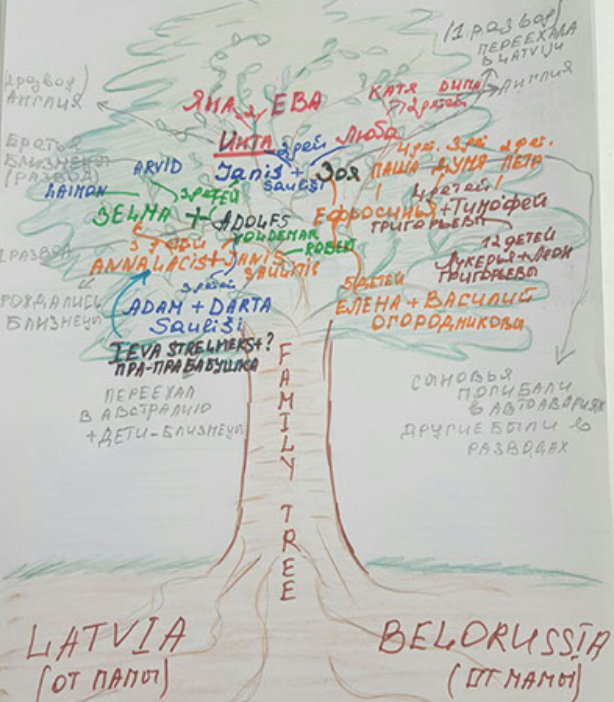 (1 развод)
ПЕРЕЕХАЛА
В LATVIJU
АНГЛИЯ
1 развод)
АНГЛИЯ
ЯНА
ЕВА
КАТЯ ДИМА
2 детей
ИНТА
3 дей
Люба
БРАТЬЯ
БЛИЗНЕЦЫ
(РАЗВОД)
ARVID
LAIMON
3 детей
Janis +
Saulisi
Зоя
4 дет. 3 дет. 2 дет.
ПАША ДУНЯ ПЕТР
4 детей
SELMA + ADOLFS
VOLDEMAR
ROBERT
ЕФРОСИНЬЯ + ТИМОФЕЙ
ГРИГОРЬЕВЫ
1 РАЗВОД
3 детей
ANNA LACIS + JANIS
SAULITIS
12 ДЕТЕЙ
ЛУКЕРЬЯ + ЛЕОН
ГРИГОРЬЕВЫ
РОЖДАЛИСЬ
БЛИЗНЕЦЫ
3 детей
ADAM + DARTA
Saulisi
5 ДЕТЕЙ
ЕЛЕНА + ВАСИЛИЙ
ОГОРОДНИКОВЫ
IEVA STRELNEKS + ?
ПРА-ПРАБАБУШКА
ПЕРЕЕХАЛ
В АВСТРАЛИЮ
+ ДЕТИ-БЛИЗНЕЦЫ
СЫНОВЬЯ
ПОГИБАЛИ
В АВТОАВАРИЯХ
ДРУГИЕ БЫЛИ В
РАЗВОДАХ
FAMILY TREE
LATVIA
(ОТ ПАПЫ)
BELORUSSIA
(ОТ МАМЫ)